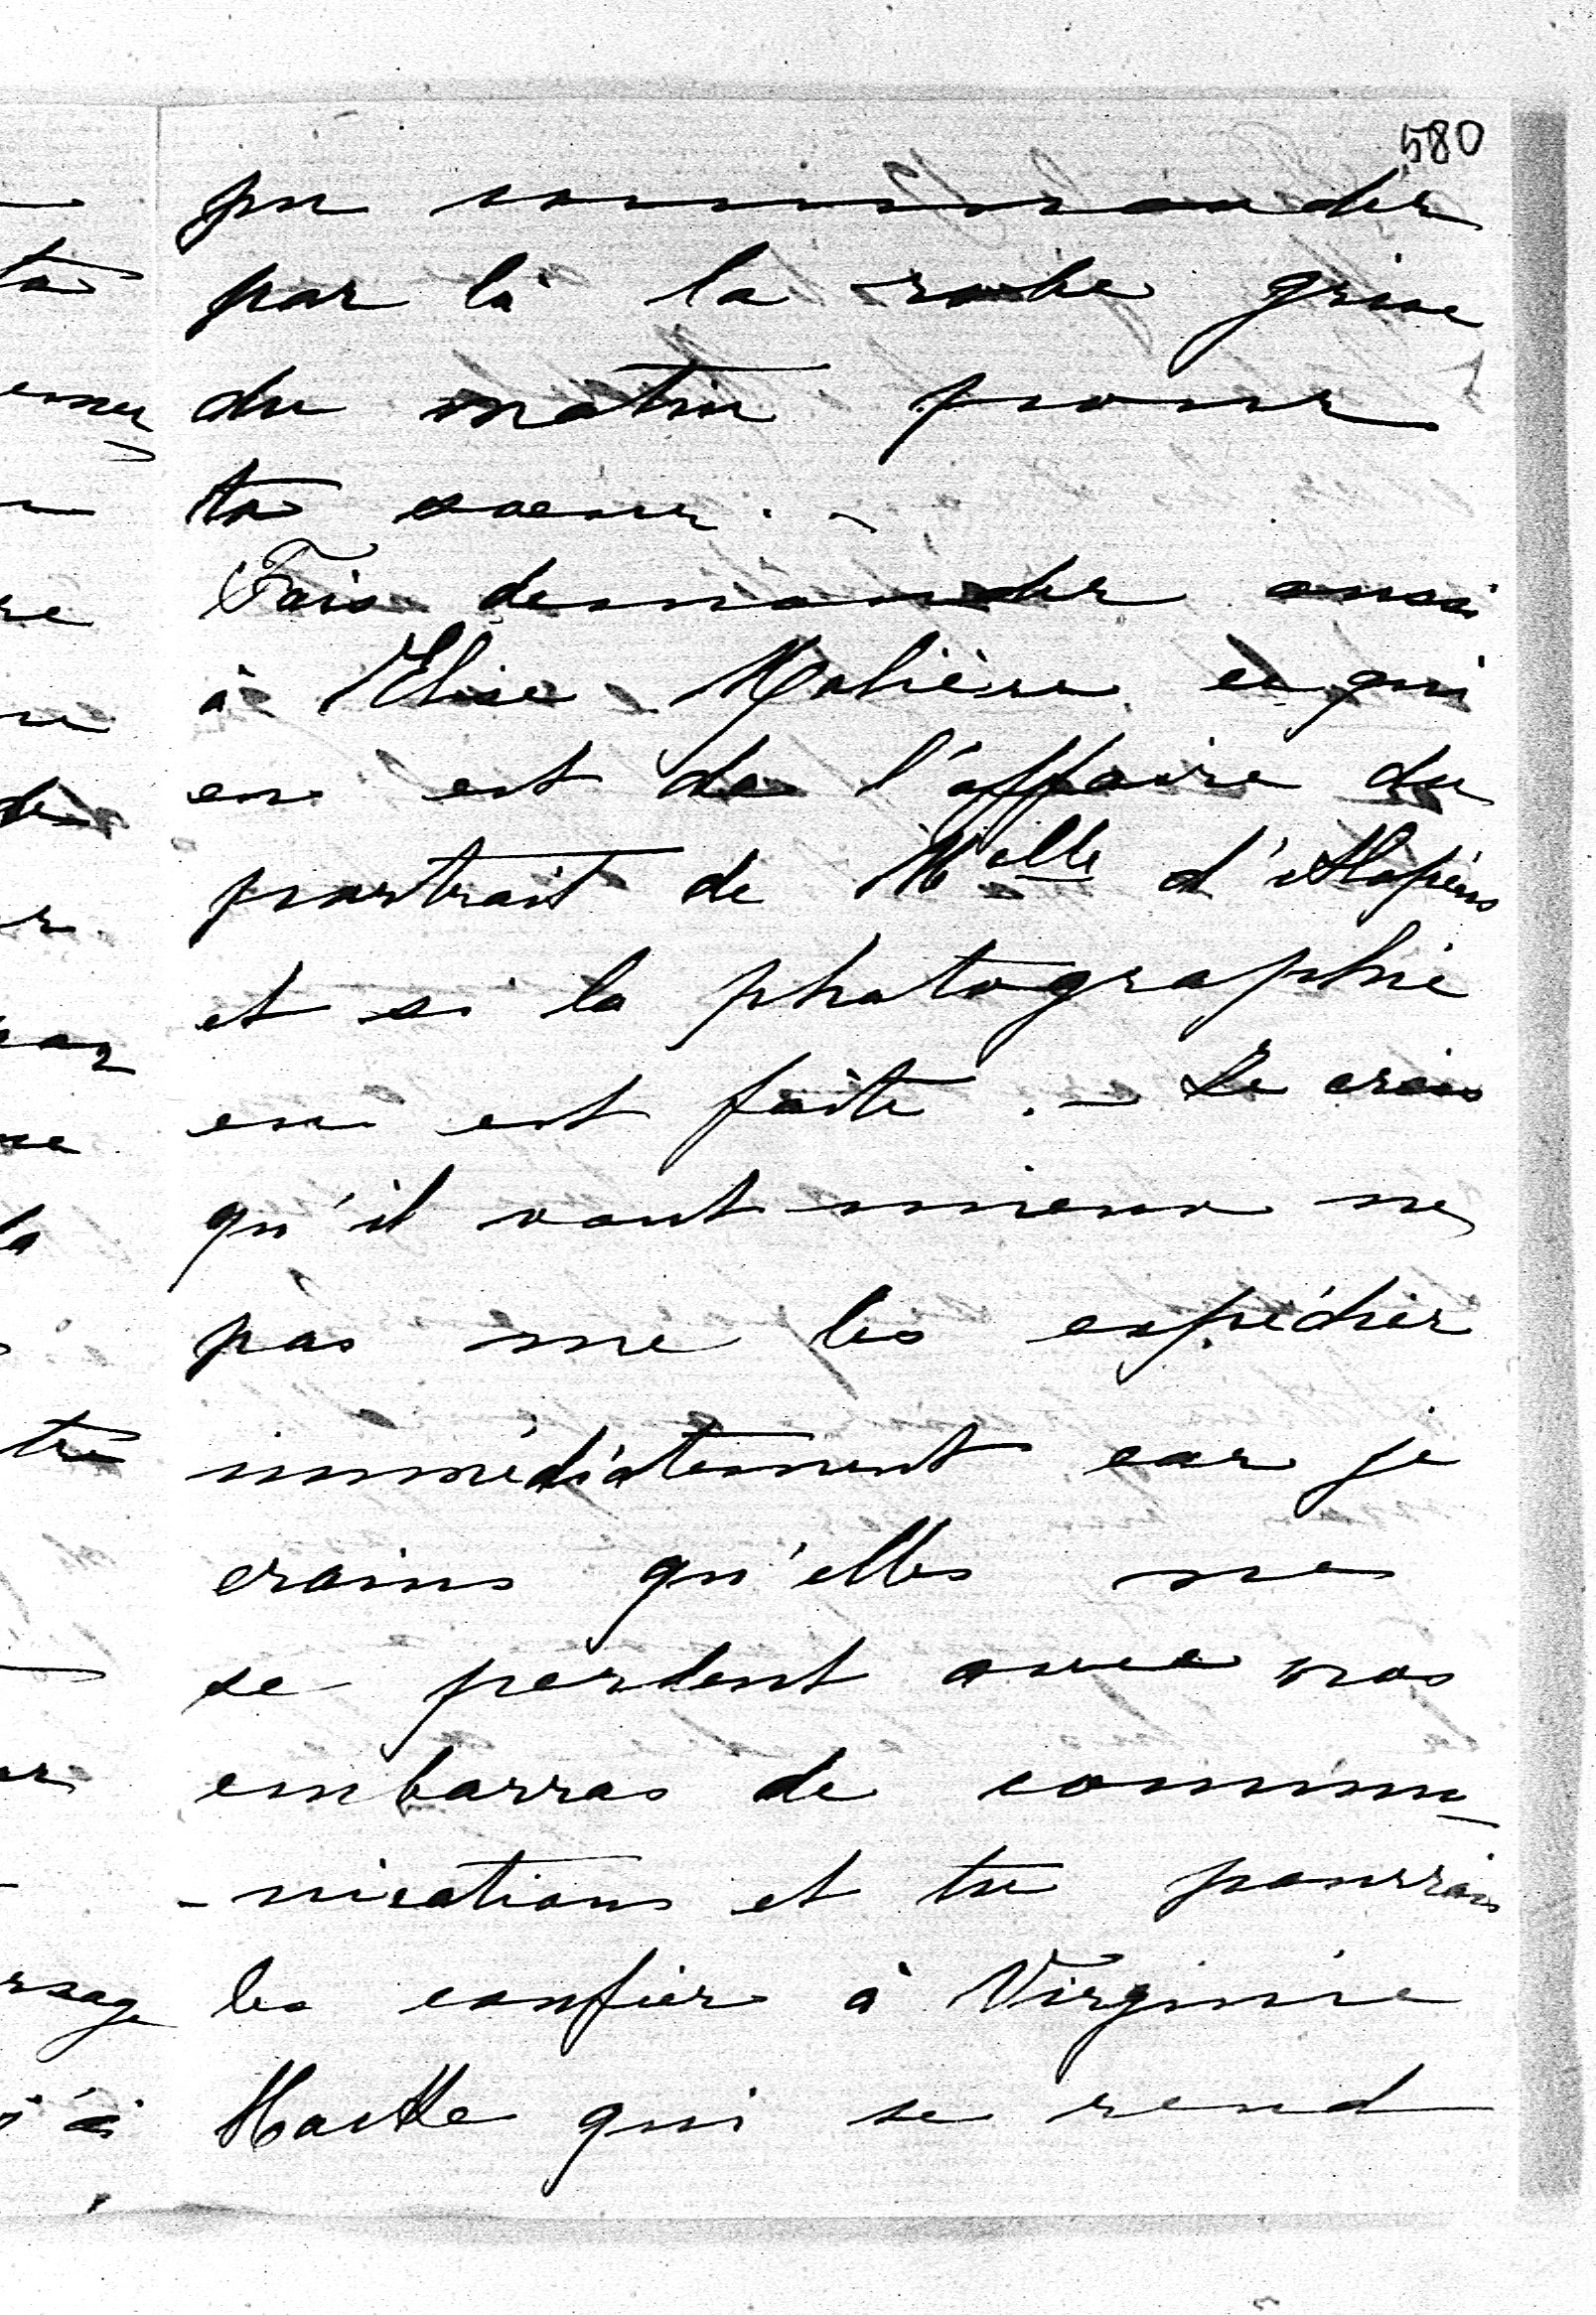 580
pu commander
par là la robe grise
du matin pour
ta soeur. -
Fais demander aussi
à Elise Molière ce qui
en est de l'affaire du
portrait de Melle
et si la photographie
en est faite. - Je crois
qu'il vaut mieux ne
pas me les expédier
immédiatement car je
crains qu'elles ne
se perdent avec nos
embarras de commu-
-nications et tu pourrais
les confier à Virginie
qui se rend